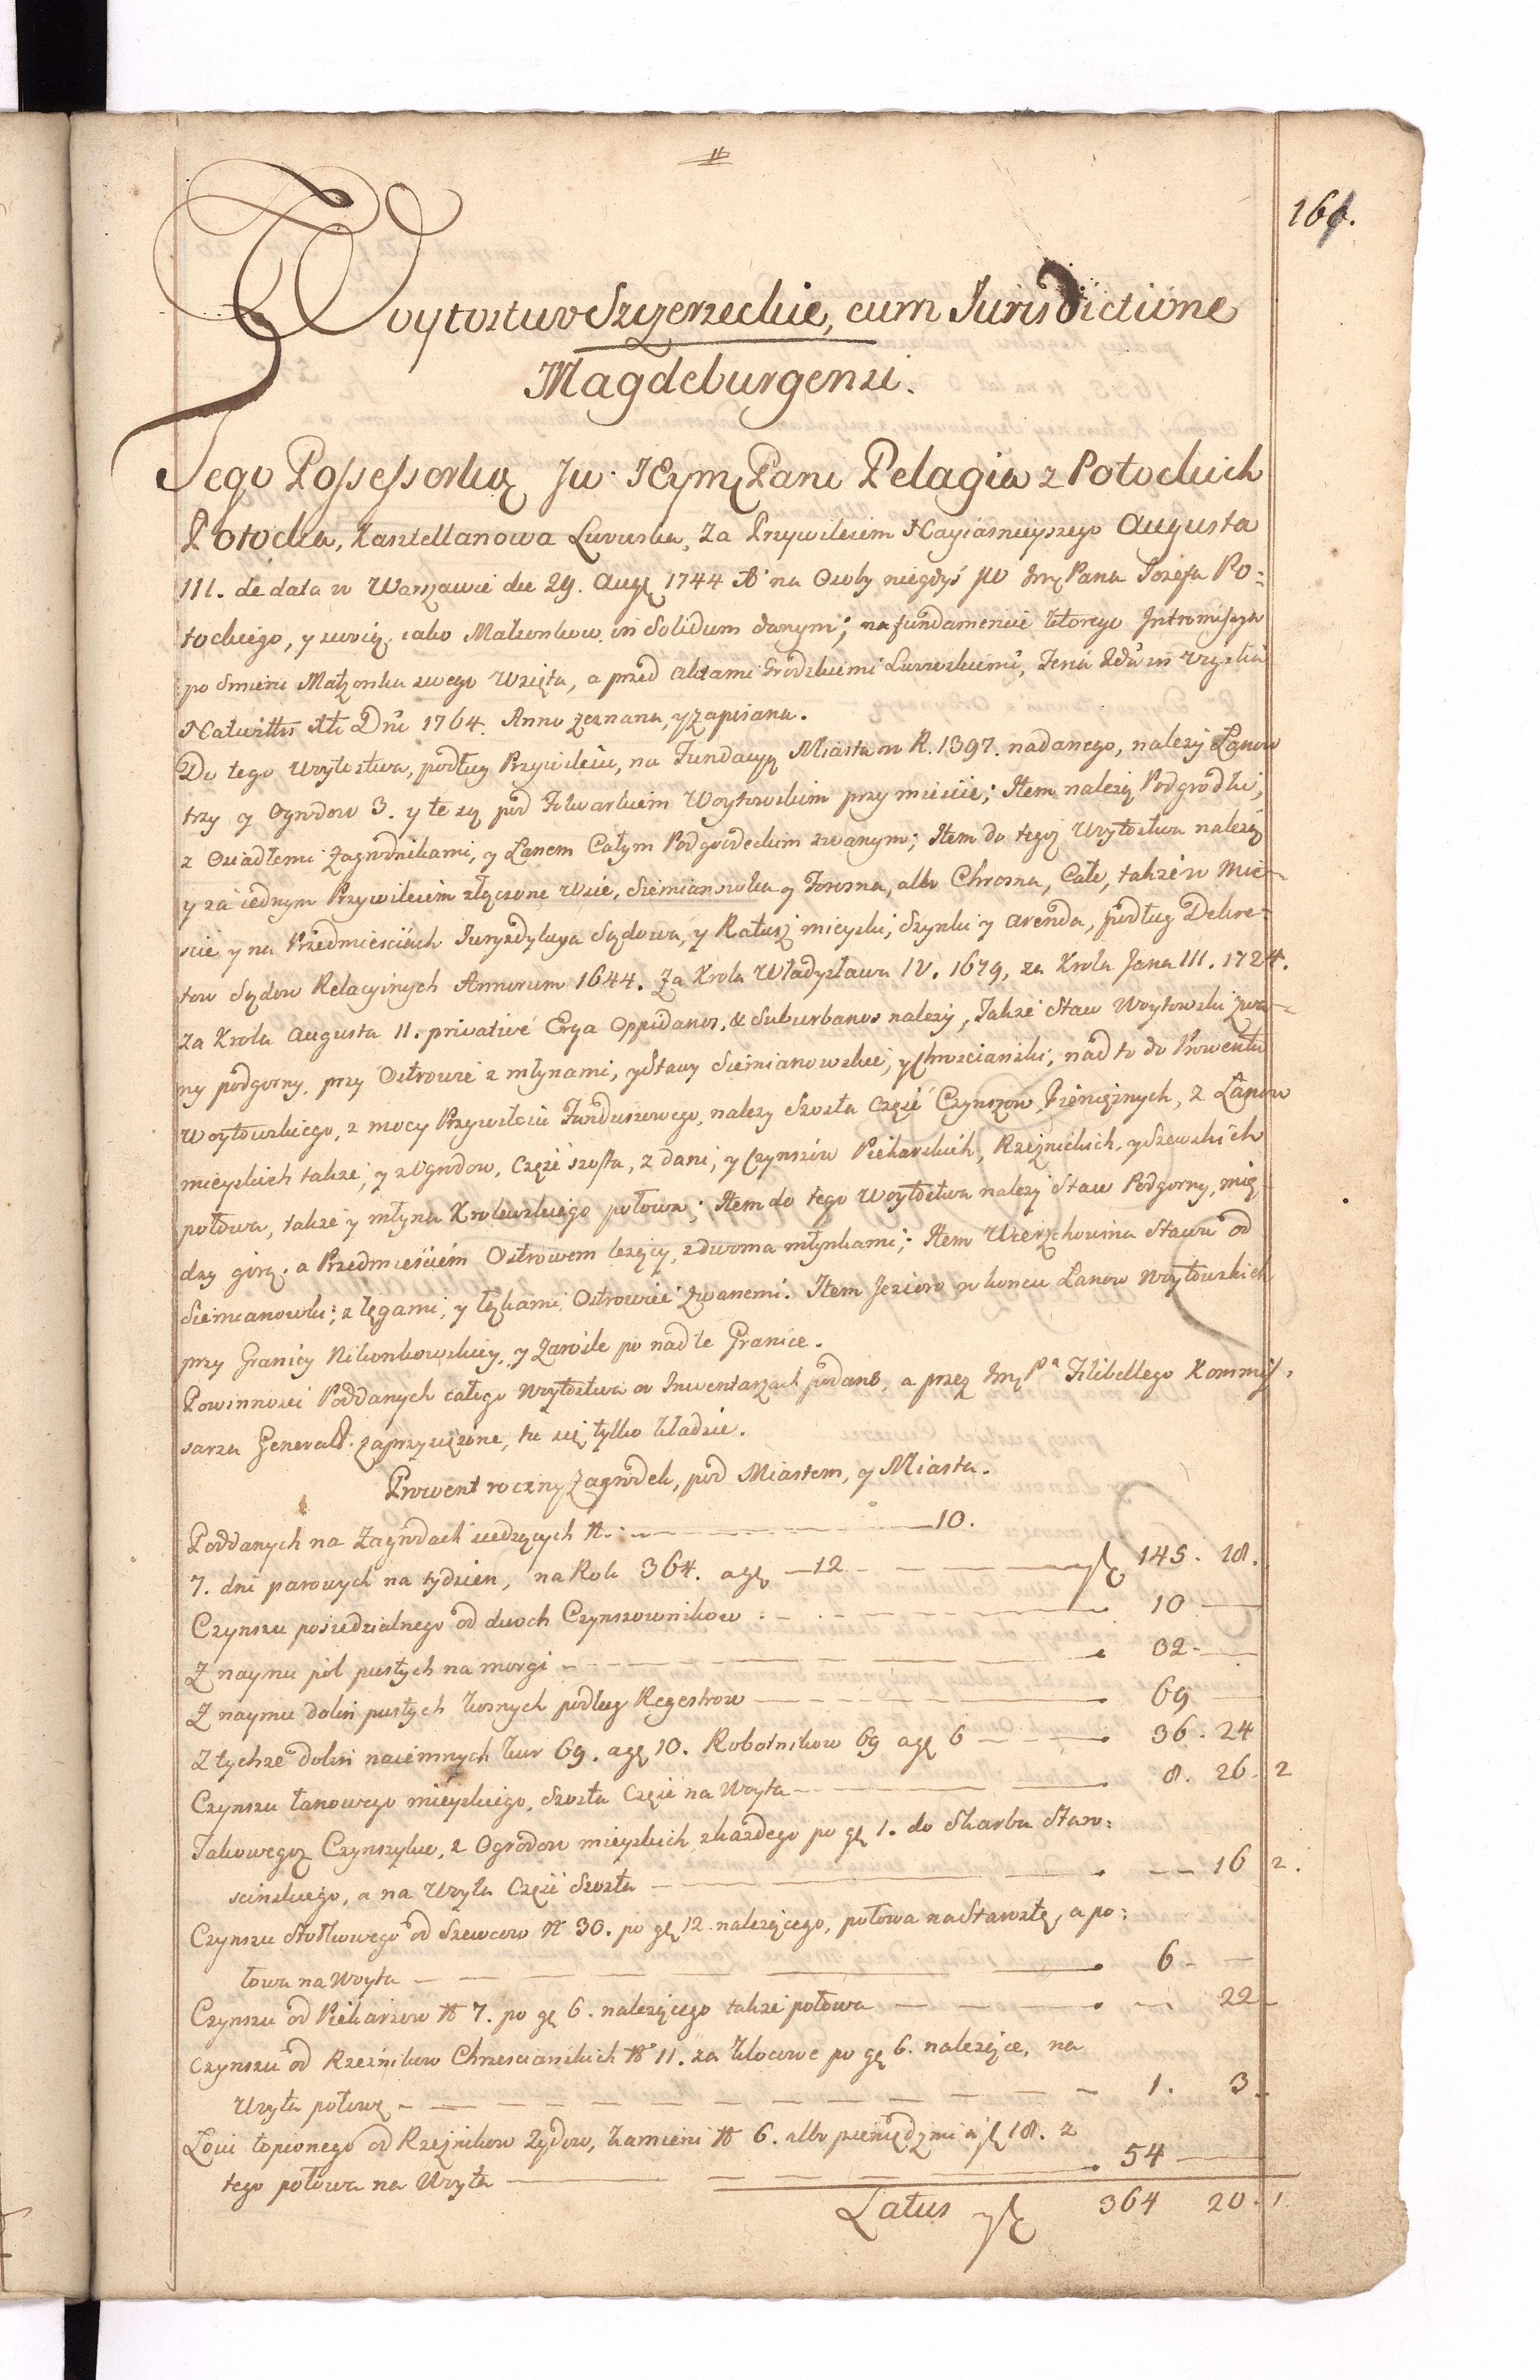 161.
Woytostwo Szczerzeckie, cum Jurisdictione
Magdeburgensi.
Jego Possessorką Jw. JEymę Pani Pelagia z Potockich
Potocka, Kasztellanowa Lwowska, Za Przywileiem Nayiasnieyszego Augusta
III. de data w Warszawie die 29. Aug 1744 A° na Osoby niegdyś JW Jmę Pana Jozefa Po=
tockiego, y swoię, iako Małzonkow in Solidum danym; na fundamencie ktorego Intromissya
po Smierci Małzonka swego Wzięta, a przed Aktami Grodzkiemi Lwowskiemi, Feria
Dni 1764. Anno zeznana, y zapisana.
Do tego Woytostwa, podług Przywileiu, na Fundacyą Miasta w R. 1397. nadanego, należy Łanow
trzy y Ogrodow 3. y te są pod Folwarkiem Woytowskim przy miescie; Item należą Podgrodki,
z Osiadłemi Zagrodnikami, y Łanem Całym Podgrodeckim zwanym; Item do tegoż Woytostwa należą
y za iednym Przywileiem złączone Wsie, Siemianowka y Forosna, albo Chrosna, Całe, także w Mie-
scie y na Przedmiesciach Juryzdykcya Sądowa, y Ratusz mieyski, Szynki y Arenda, podług Dekre=
tow Sądow Relacyinych Annorum 1644. Za Krola Władysława IV. 1679, za Krola Jana III. 1724.
za Krola Augusta II. privativé Erga Oppidanos, & Suburbanos należy, Także Staw Woytowski zwa=
ny podgorny, przy Ostrowie z młynami, y Stawy Siemianowskie, y Chrosciański, nad to do Prowentu
Woytowskiego, z mocy Przywileiu Funduszowego, należy Szosta Część Czynszow Pieniężnych, z Łanow
mieyskich także, y z Ogrodow, Część szosta, z dani, y Czynszów Piekarskich, Rzeźnickich, y Szewskich
połowa, także y młyna Krolewskiego połowa; Item do tego Woytostwa należy Staw Podgorny, mię,
dzy górą, a Przedmieściem Ostrowem leżący, z dwoma młynkami; Item Wierzchowina Stawu od
Siemianowki, z łęgami, y łąkami Ostrowie zwanemi. Item Jezioro w koncu Łanow Woytowskich
przy Granicy Nikonkowskiey, y Zarośle po nad te Granice.
Powinnosci Poddanych całego Woytostwa w Inwentarzach podane, a przez Jmę Pa Filibellego Kommis,
sarza General. zaprzysiężone, tu się tylko kładzie.
Prowent roczny Zagrodek, pod Miastem, y Miasta.
Poddanych na Zagrodach siedzących N. 10.
7. dni parowych na tydzien, na Rok 364. a gę 12 145. 18.
Czynszu posiedzialnego od dwoch Czynszownikow 10
Z naymu pol pustych na morgi 32
Z naymu dolin pustych kosnych podług Regestrow 69
Z tychże dolin naiemnych kur 69. a gę 10. Robotnikow 69 a gę 6 36. 24
Czynszu łanowego mieyskiego, Szosta Część na Woyta 8. 26. 2
Takowegoż Czynszyku, z Ogrodow mieyskich, z każdego po gę 1. do Skarbu Staro:
scinskiego, a na Woyta Część Szosta 16 2.
Czynszu stołkowego od Szewcow N 30. po gę 12. należącego, połowa na Starostę, a po:
łowa na Woyta 6
Czynszu od Piekarzow N 7. po gę 6. należącego także połowa 22
Czynszu od Rzeźnikow Chrzescianskich N 11. za Klocowe po gę 6. należące, na
Woyta połowę 1. 3
Łoiu topionego od Rzeźnikow Żydow, kamieni N 6. albo pieniędzmi a 18. z
tego połowa na Woyta 54
Latus 364 20. 1.